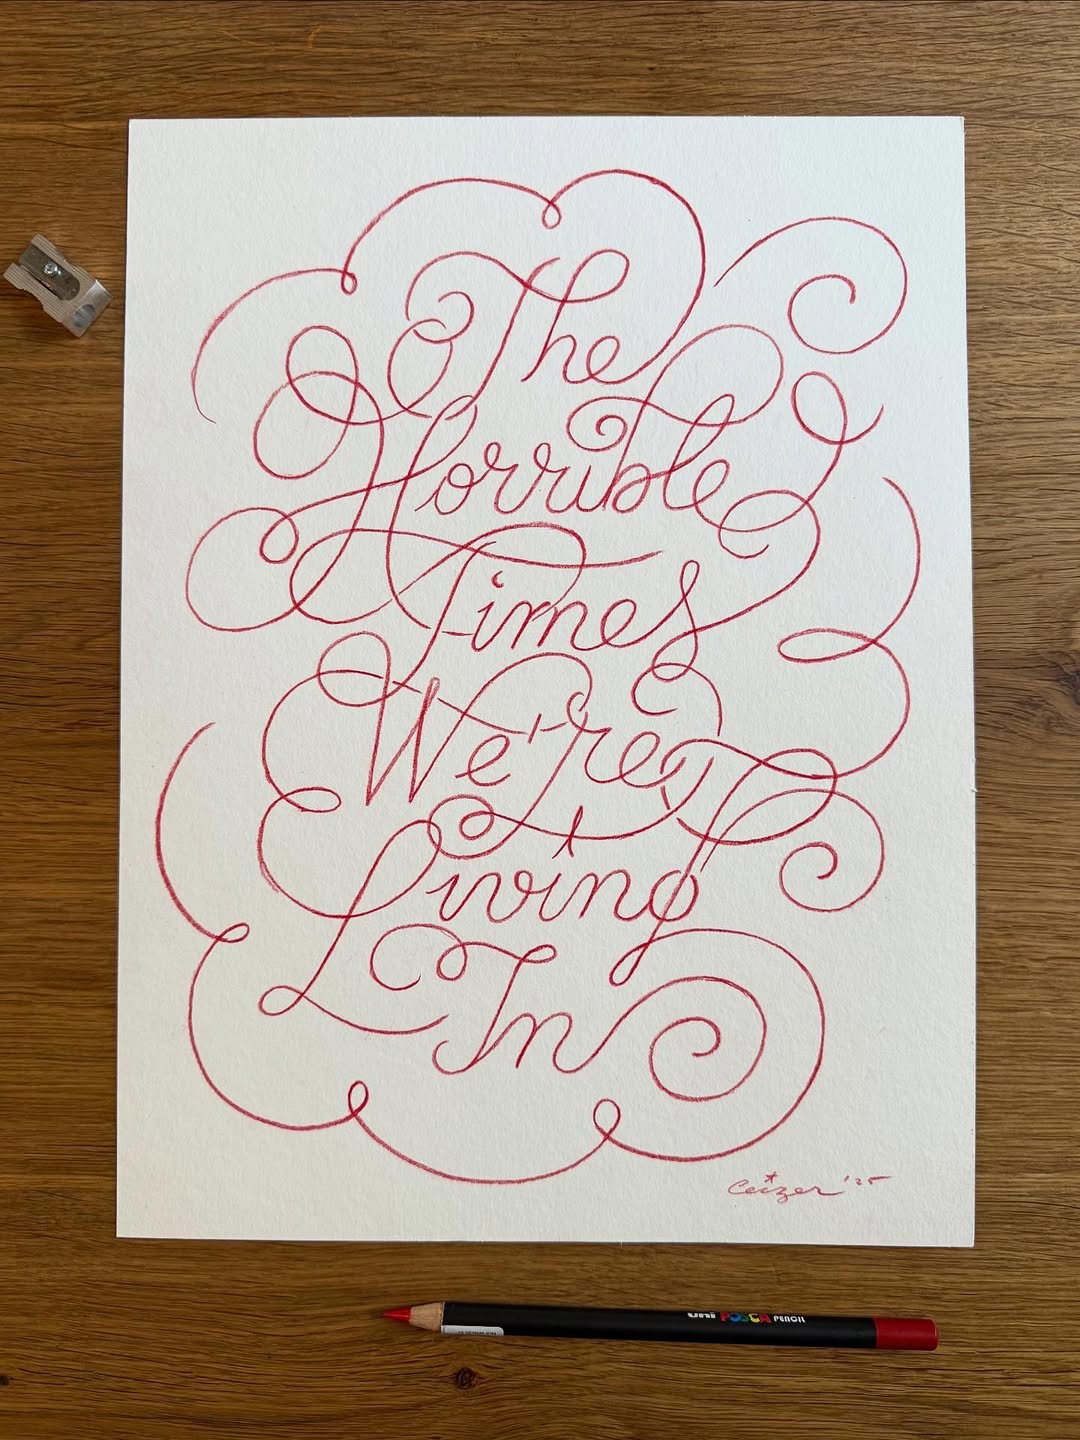 The
Horrible
Times
We're
Living
In
Ceizer '25
uni POSCA PENCIL